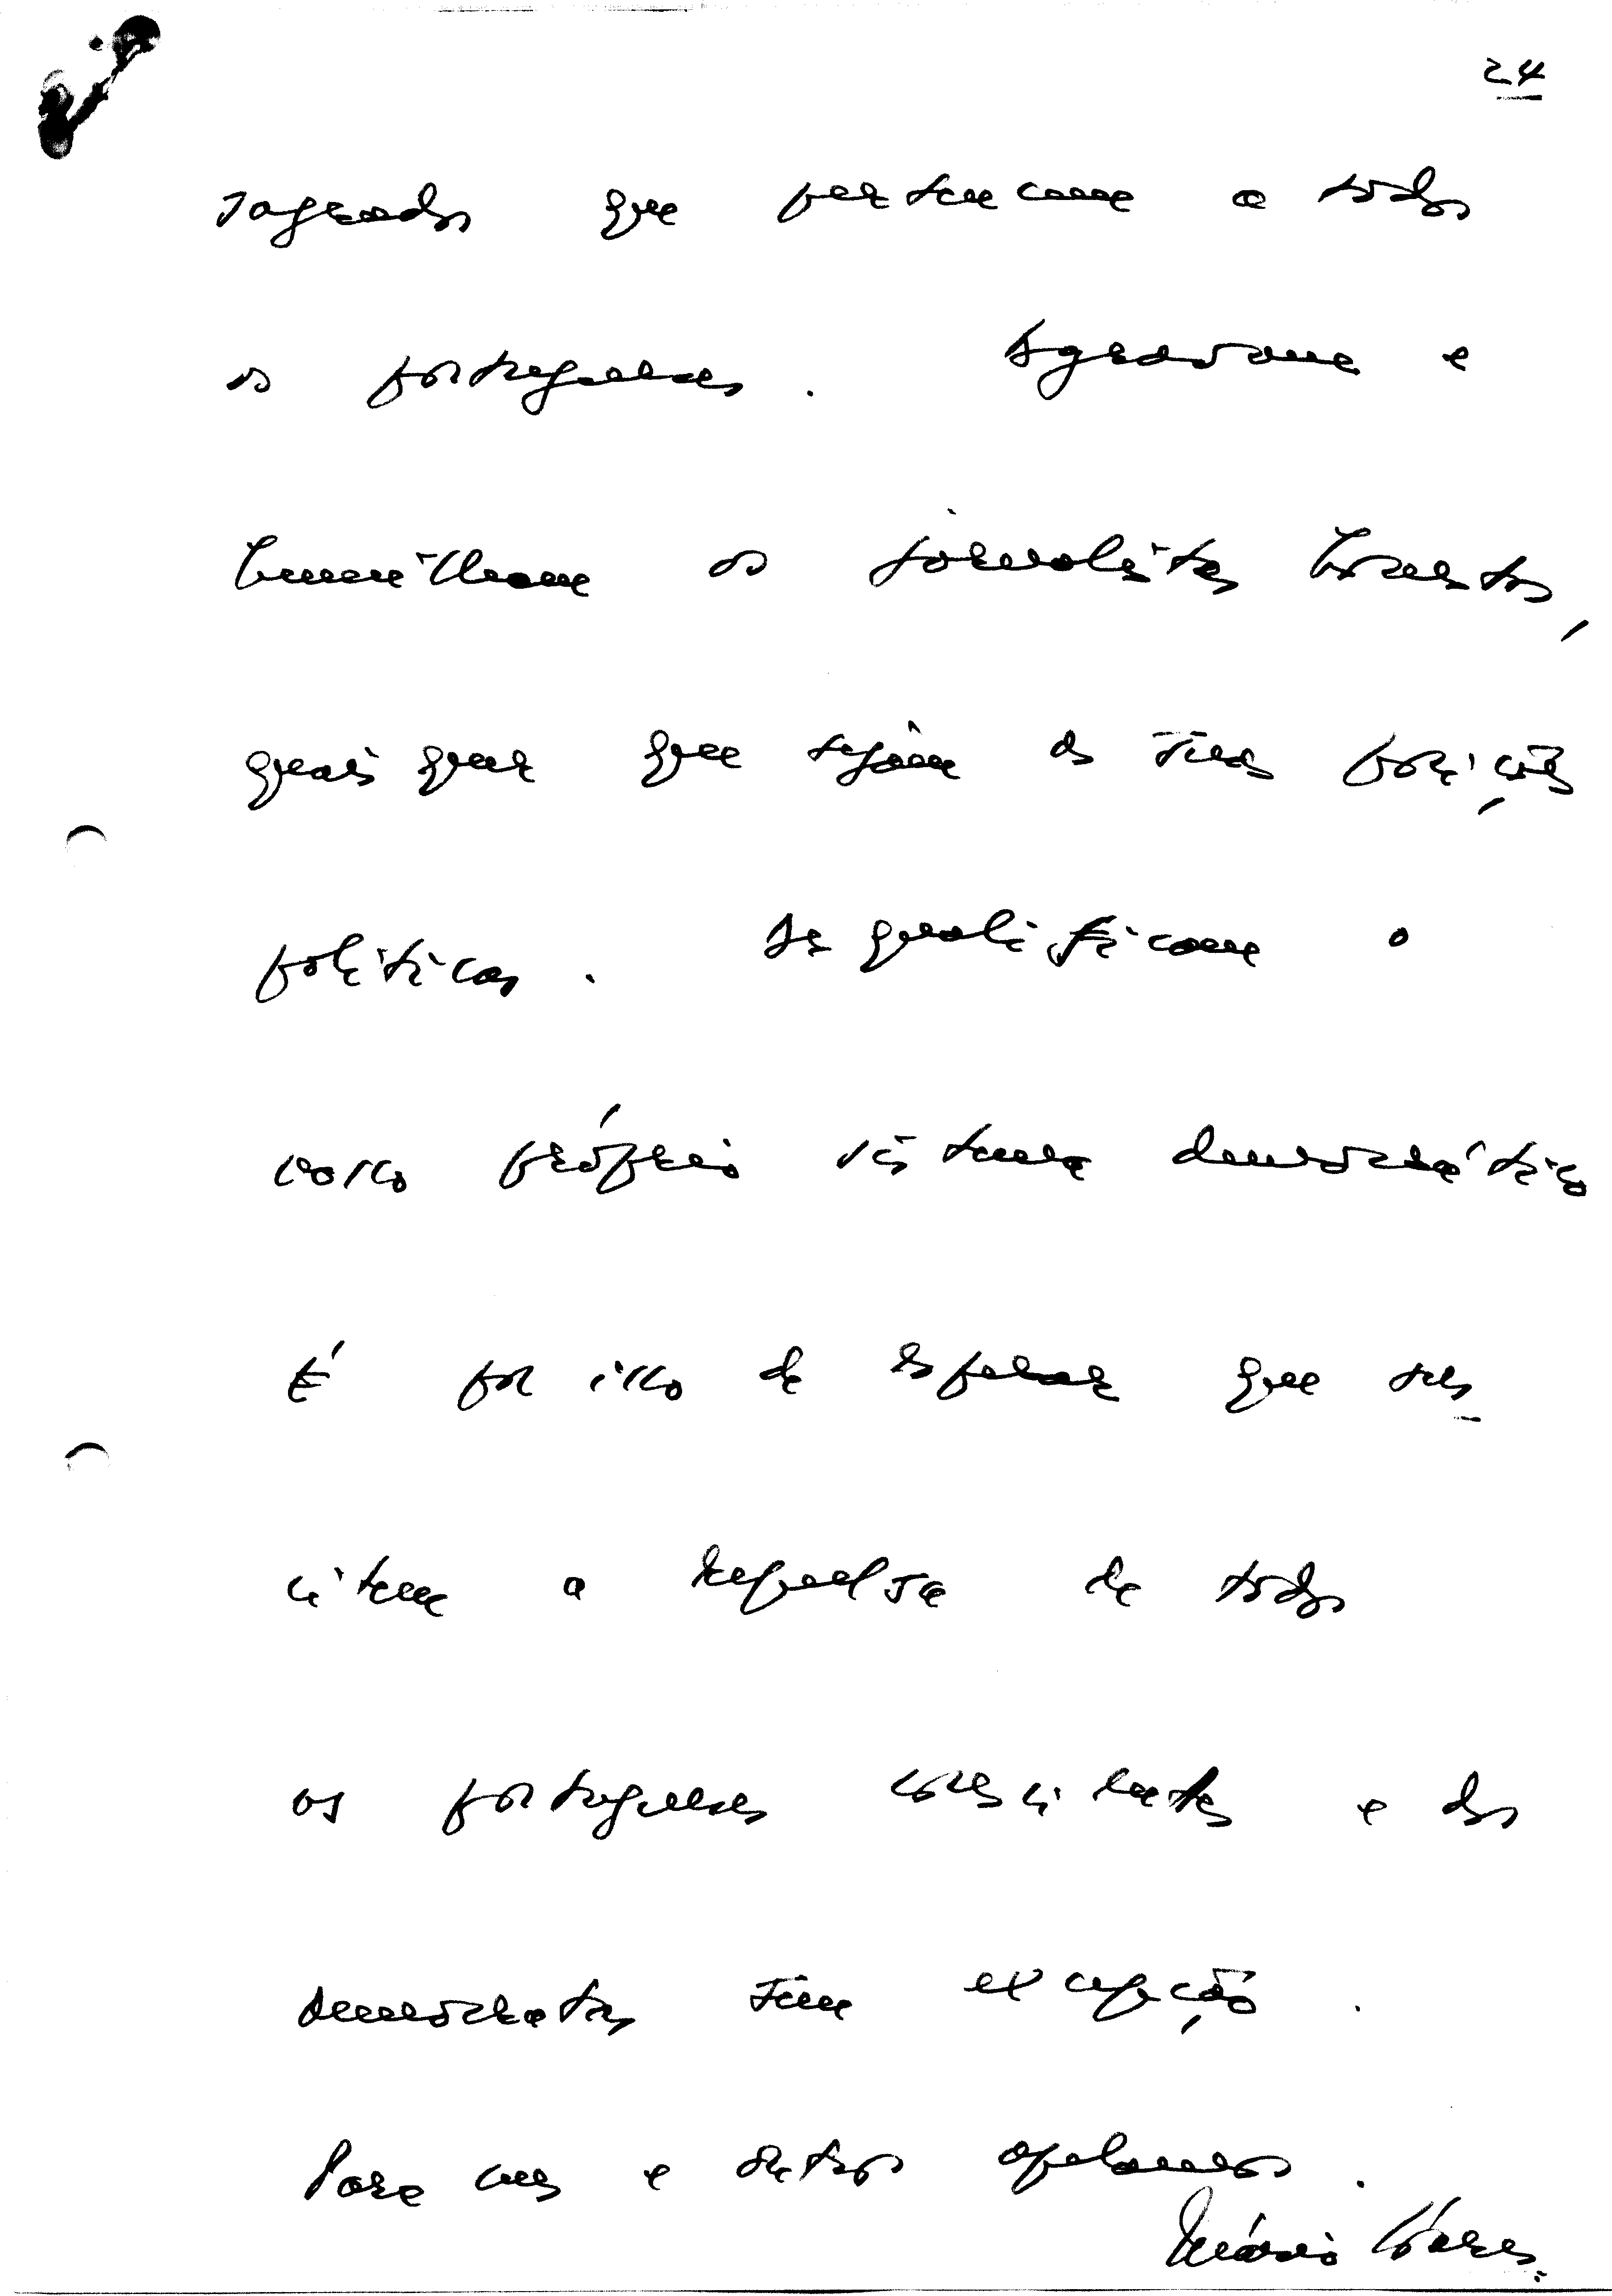 24
sagrados que pertencem a todos
os portugueses. Agravam e
humilham os jornalistas honestos,
quaisquer que sejam as suas posições
políticas. Desqualificam o
nosso próprio sistema democrático
É por isso de esperar que sus-
citem a repulsa de todos
os portugueses conscientes e dos
democratas sem excepção.
Para uns e outros apelamos.
Mário Soares